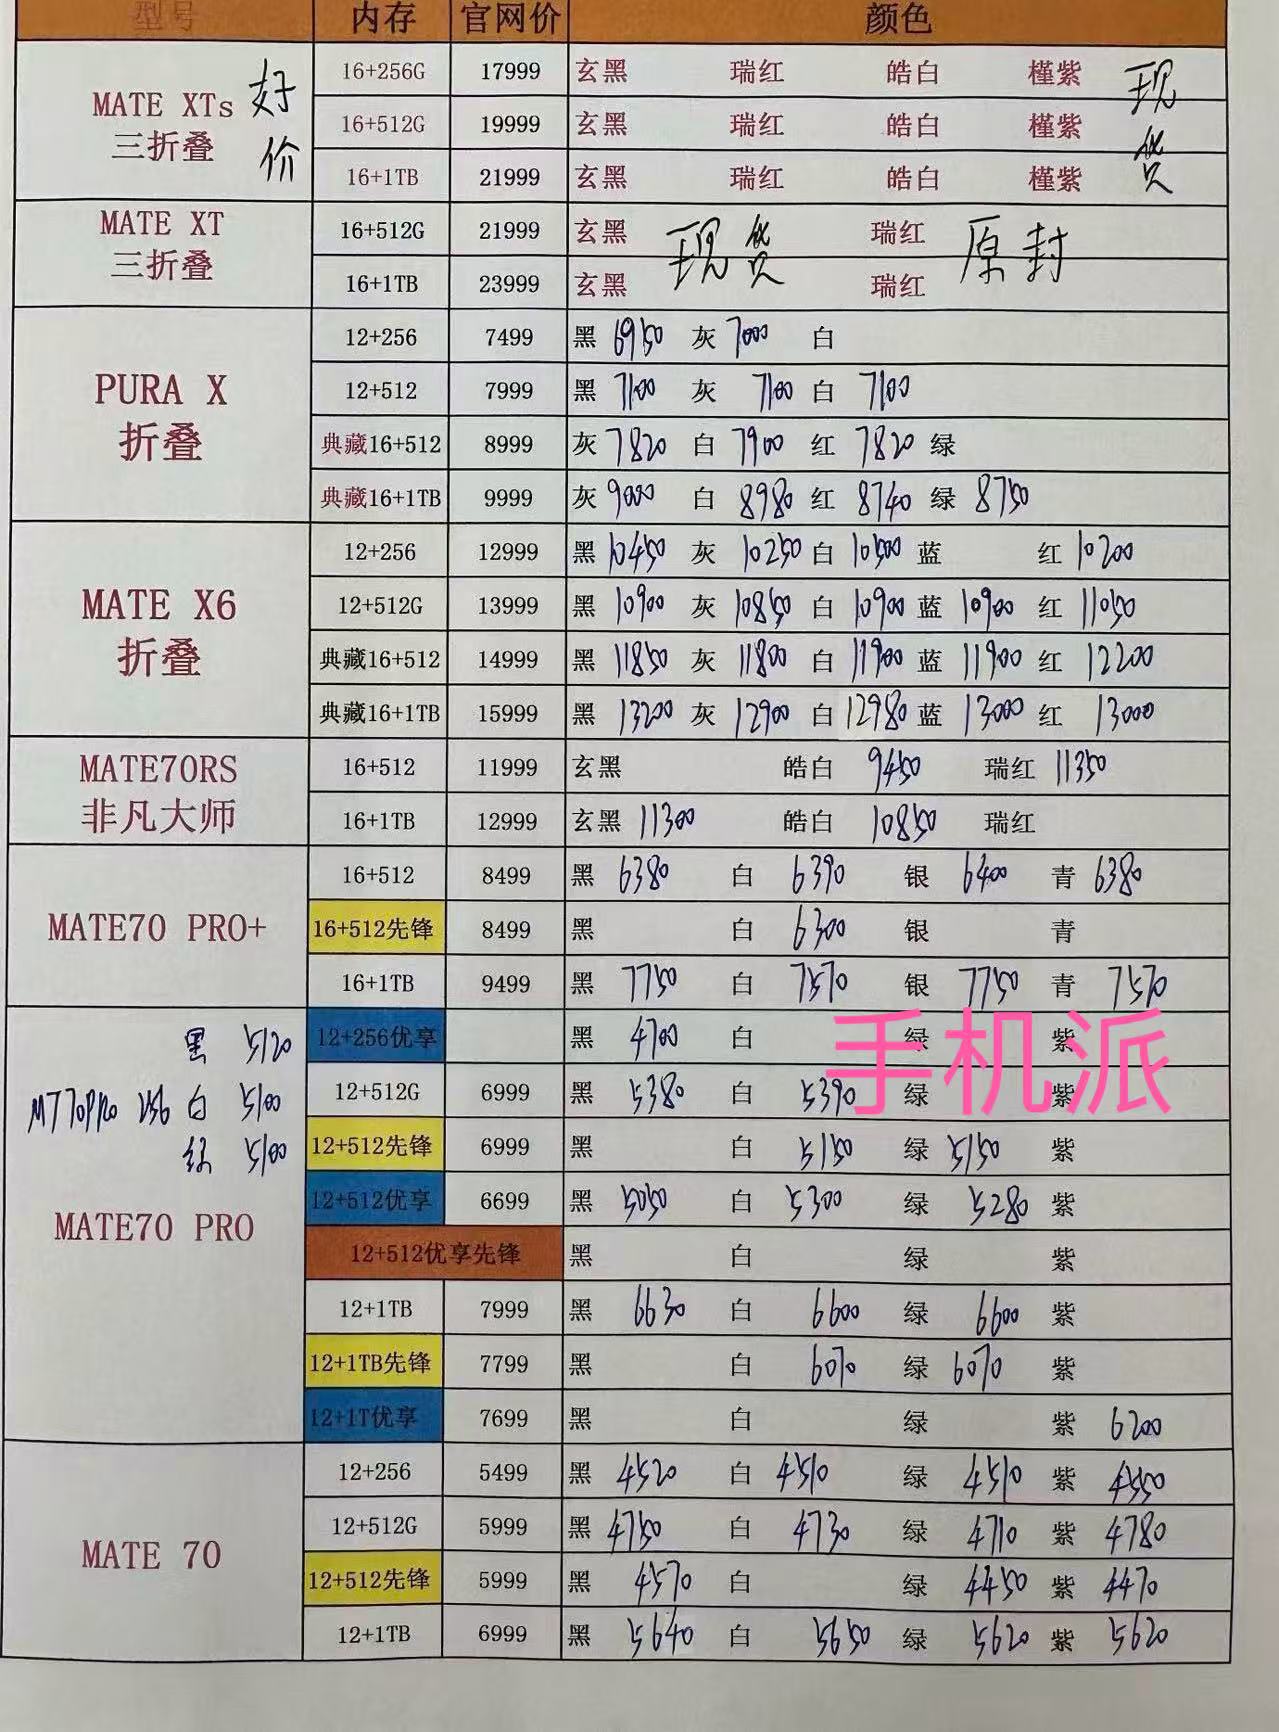 型号 内存 官网价 颜色
MATE XTs 三折叠 好价
16+256G 17999 玄黑 瑞红 皓白 槿紫 现货
16+512G 19999 玄黑 瑞红 皓白 槿紫
16+1TB 21999 玄黑 瑞红 皓白 槿紫
MATE XT 三折叠
16+512G 21999 玄黑 现货 瑞红 原封
16+1TB 23999 玄黑 瑞红
PURA X 折叠
12+256 7499 黑 6950 灰 7000 白
12+512 7999 黑 7100 灰 7100 白 7100
典藏16+512 8999 灰 7820 白 7900 红 7820 绿
典藏16+1TB 9999 灰 9000 白 8980 红 8740 绿 8750
MATE X6 折叠
12+256 12999 黑 10450 灰 10250 白 10500 蓝 红 10200
12+512G 13999 黑 10900 灰 10850 白 10900 蓝 10900 红 11050
典藏16+512 14999 黑 11850 灰 11800 白 11900 蓝 11900 红 12200
典藏16+1TB 15999 黑 13200 灰 12900 白 12980 蓝 13000 红 13000
MATE70RS 非凡大师
16+512 11999 玄黑 皓白 9450 瑞红 11350
16+1TB 12999 玄黑 11300 皓白 10850 瑞红
MATE70 PRO+
16+512 8499 黑 6380 白 6390 银 6400 青 6380
16+512先锋 8499 黑 白 6300 银 青
16+1TB 9499 黑 7750 白 7570 银 7750 青 7570
手机派
黑 5120
MT70PRO 256 白 5100
绿 5100
MATE70 PRO
12+256优享 黑 4700 白 绿 紫
12+512G 6999 黑 5380 白 5390 绿 紫
12+512先锋 6999 黑 白 5150 绿 5150 紫
12+512优享 6699 黑 5050 白 5300 绿 5280 紫
12+512优享先锋 黑 白 绿 紫
12+1TB 7999 黑 6630 白 6600 绿 6600 紫
12+1TB先锋 7799 黑 白 6070 绿 6070 紫
12+1T优享 7699 黑 白 绿 紫 6200
MATE 70
12+256 5499 黑 4520 白 4510 绿 4510 紫 4550
12+512G 5999 黑 4750 白 4730 绿 4710 紫 4780
12+512先锋 5999 黑 4570 白 绿 4450 紫 4470
12+1TB 6999 黑 5640 白 5650 绿 5620 紫 5620